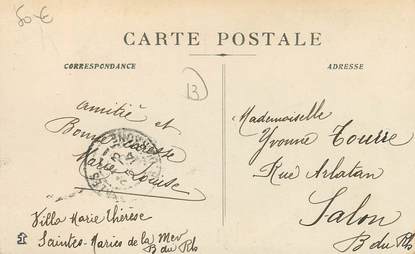 50 €
CARTE POSTALE
CORRESPONDANCE
ADRESSE
B
amitié et
Bonne caresse
Marie Louise
Villa Marie Thérèse
Saintes-Maries de la Mer
B du Rh
Mademoiselle
Yvonne Tourre
Rue Arlatan
Salon
B du Rh